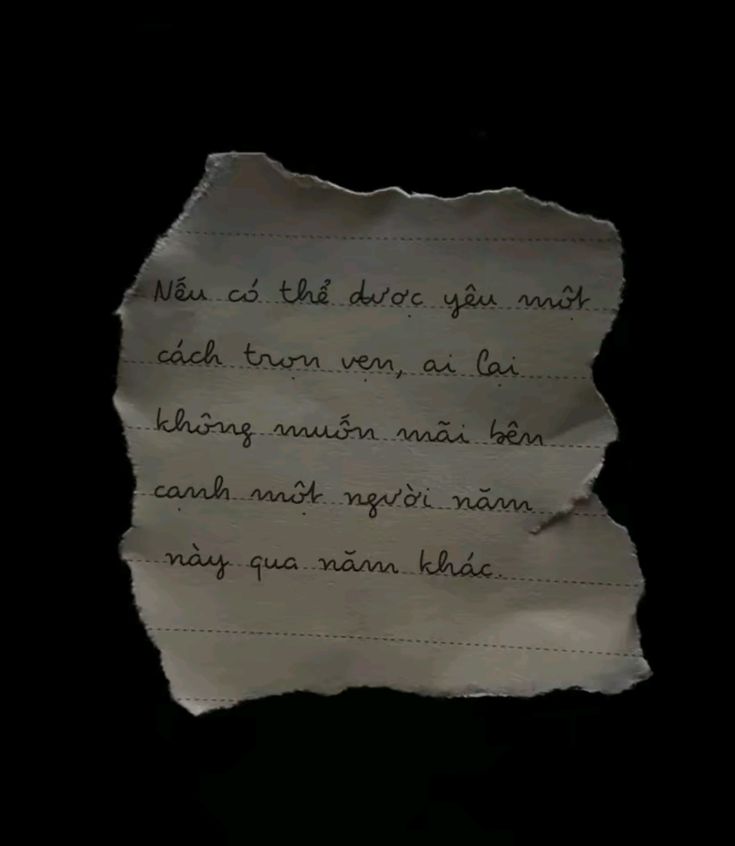 Nếu có thể được yêu một
cách trọn vẹn, ai lại
không muốn mãi bên
cạnh một người năm
này qua năm khác.